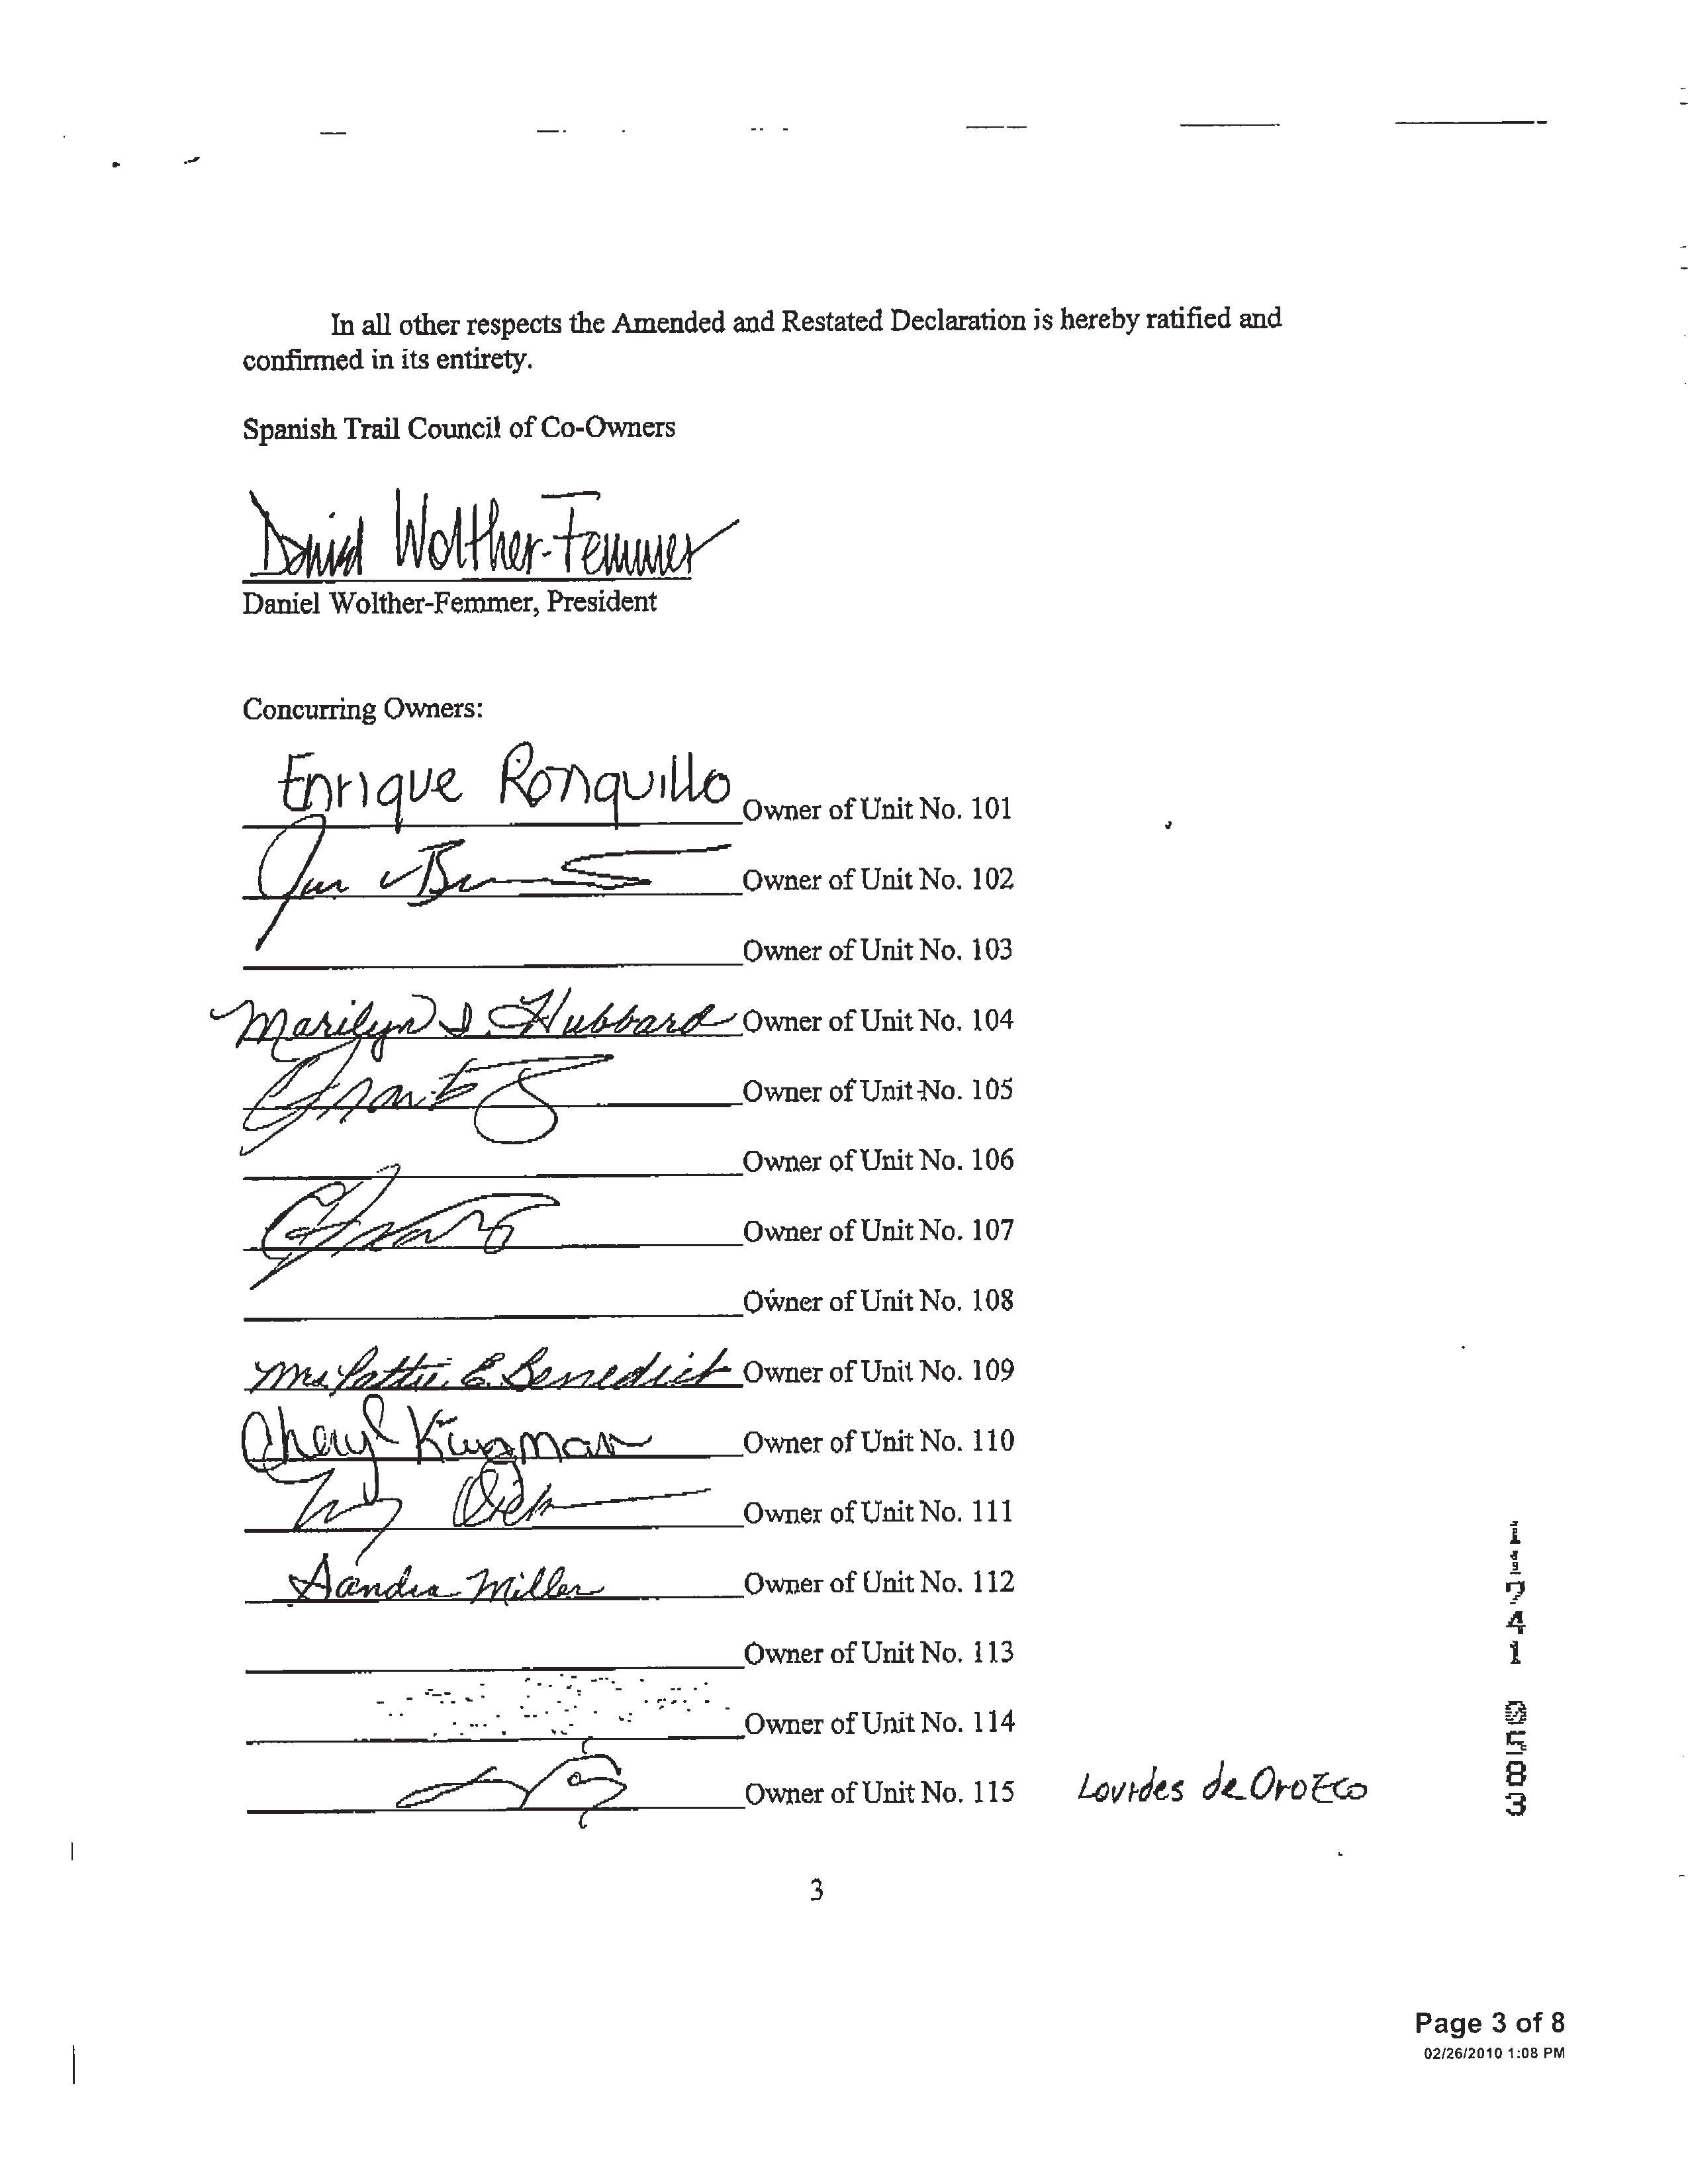 In all other respects the Amended and Restated Declaration is hereby ratified and
confirmed in its entirety.
Spanish Trail Council of Co-Owners
Daniel Wolther-Femmer
Daniel Wolther-Femmer, President
Concurring Owners:
Enrique Ronquillo Owner of Unit No. 101
Owner of Unit No. 102
Owner of Unit No. 103
Marilyn I. Hubbard Owner of Unit No. 104
Owner of Unit No. 105
Owner of Unit No. 106
Owner of Unit No. 107
Owner of Unit No. 108
Mrs. Pattie E. Benedict Owner of Unit No. 109
Cheryl Owner of Unit No. 110
Owner of Unit No. 111
Sandra Miller Owner of Unit No. 112
Owner of Unit No. 113
Owner of Unit No. 114
Owner of Unit No. 115 Lourdes de Orozco
3
Page 3 of 8
02/26/2010 1:08 PM